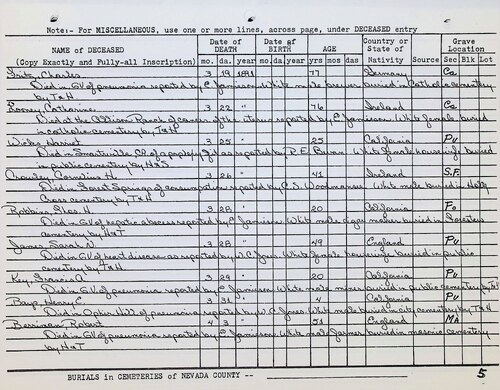 Note:- For MISCELLANEOUS, use one or more lines, across page, under DECEASED entry
NAME of DECEASED Date of DEATH Date of BIRTH AGE Country or State of Nativity Source Grave Location
(Copy Exactly and Fully-all Inscription) mo. da. year mo. da. year yrs mos das Sec. Blk Lot
Fritz, Charles 3 19 1891 77 Germany Ca
Died in GV of pneumonia reported by C. Jamieson White male brewer buried in Catholic cemetery
by T&H
Rooney, Catharine 3 22 " 76 Ireland Ca
Died at the Allison Ranch of cancer of the uterus reported by C. Jamieson White female buried
in catholic cemetery by T&H
Harriet 3 25 " 25 California Pu
Died in Smartsville of apoplexy as reported by White female buried
in public cemetery by H&T
Cornelius H. 3 26 " 41 Ireland S.F.
Died in Springs of consumption reported by White male buried in Holy
Cross cemetery by T&H
Robbins, H. 3 28 " 20 California Fo
Died in GV of hepatic abscess reported by C. Jamieson White male buried in Foresters
cemetery by H&T
James, Sarah N. 3 28 " 49 England Pu
Died in GV of heart disease as reported by W.C. Jones White female housewife buried in public
cemetery by T&H
Key, Francis A. 3 29 " 20 California Pu
Died in GV of pneumonia reported by C. Jamieson White male miner buried in public cemetery by T&H
Henry E. 3 31 " 4 California Pu
Died in Ophir Hill of pneumonia reported by W.C. Jones White male buried in city cemetery by T&H
Berriman, Robert 4 3 " 51 England MA
Died in GV of pneumonia reported by C. Jamieson White male farmer buried in masonic cemetery
by H&T
BURIALS in CEMETERIES of NEVADA COUNTY -- 5